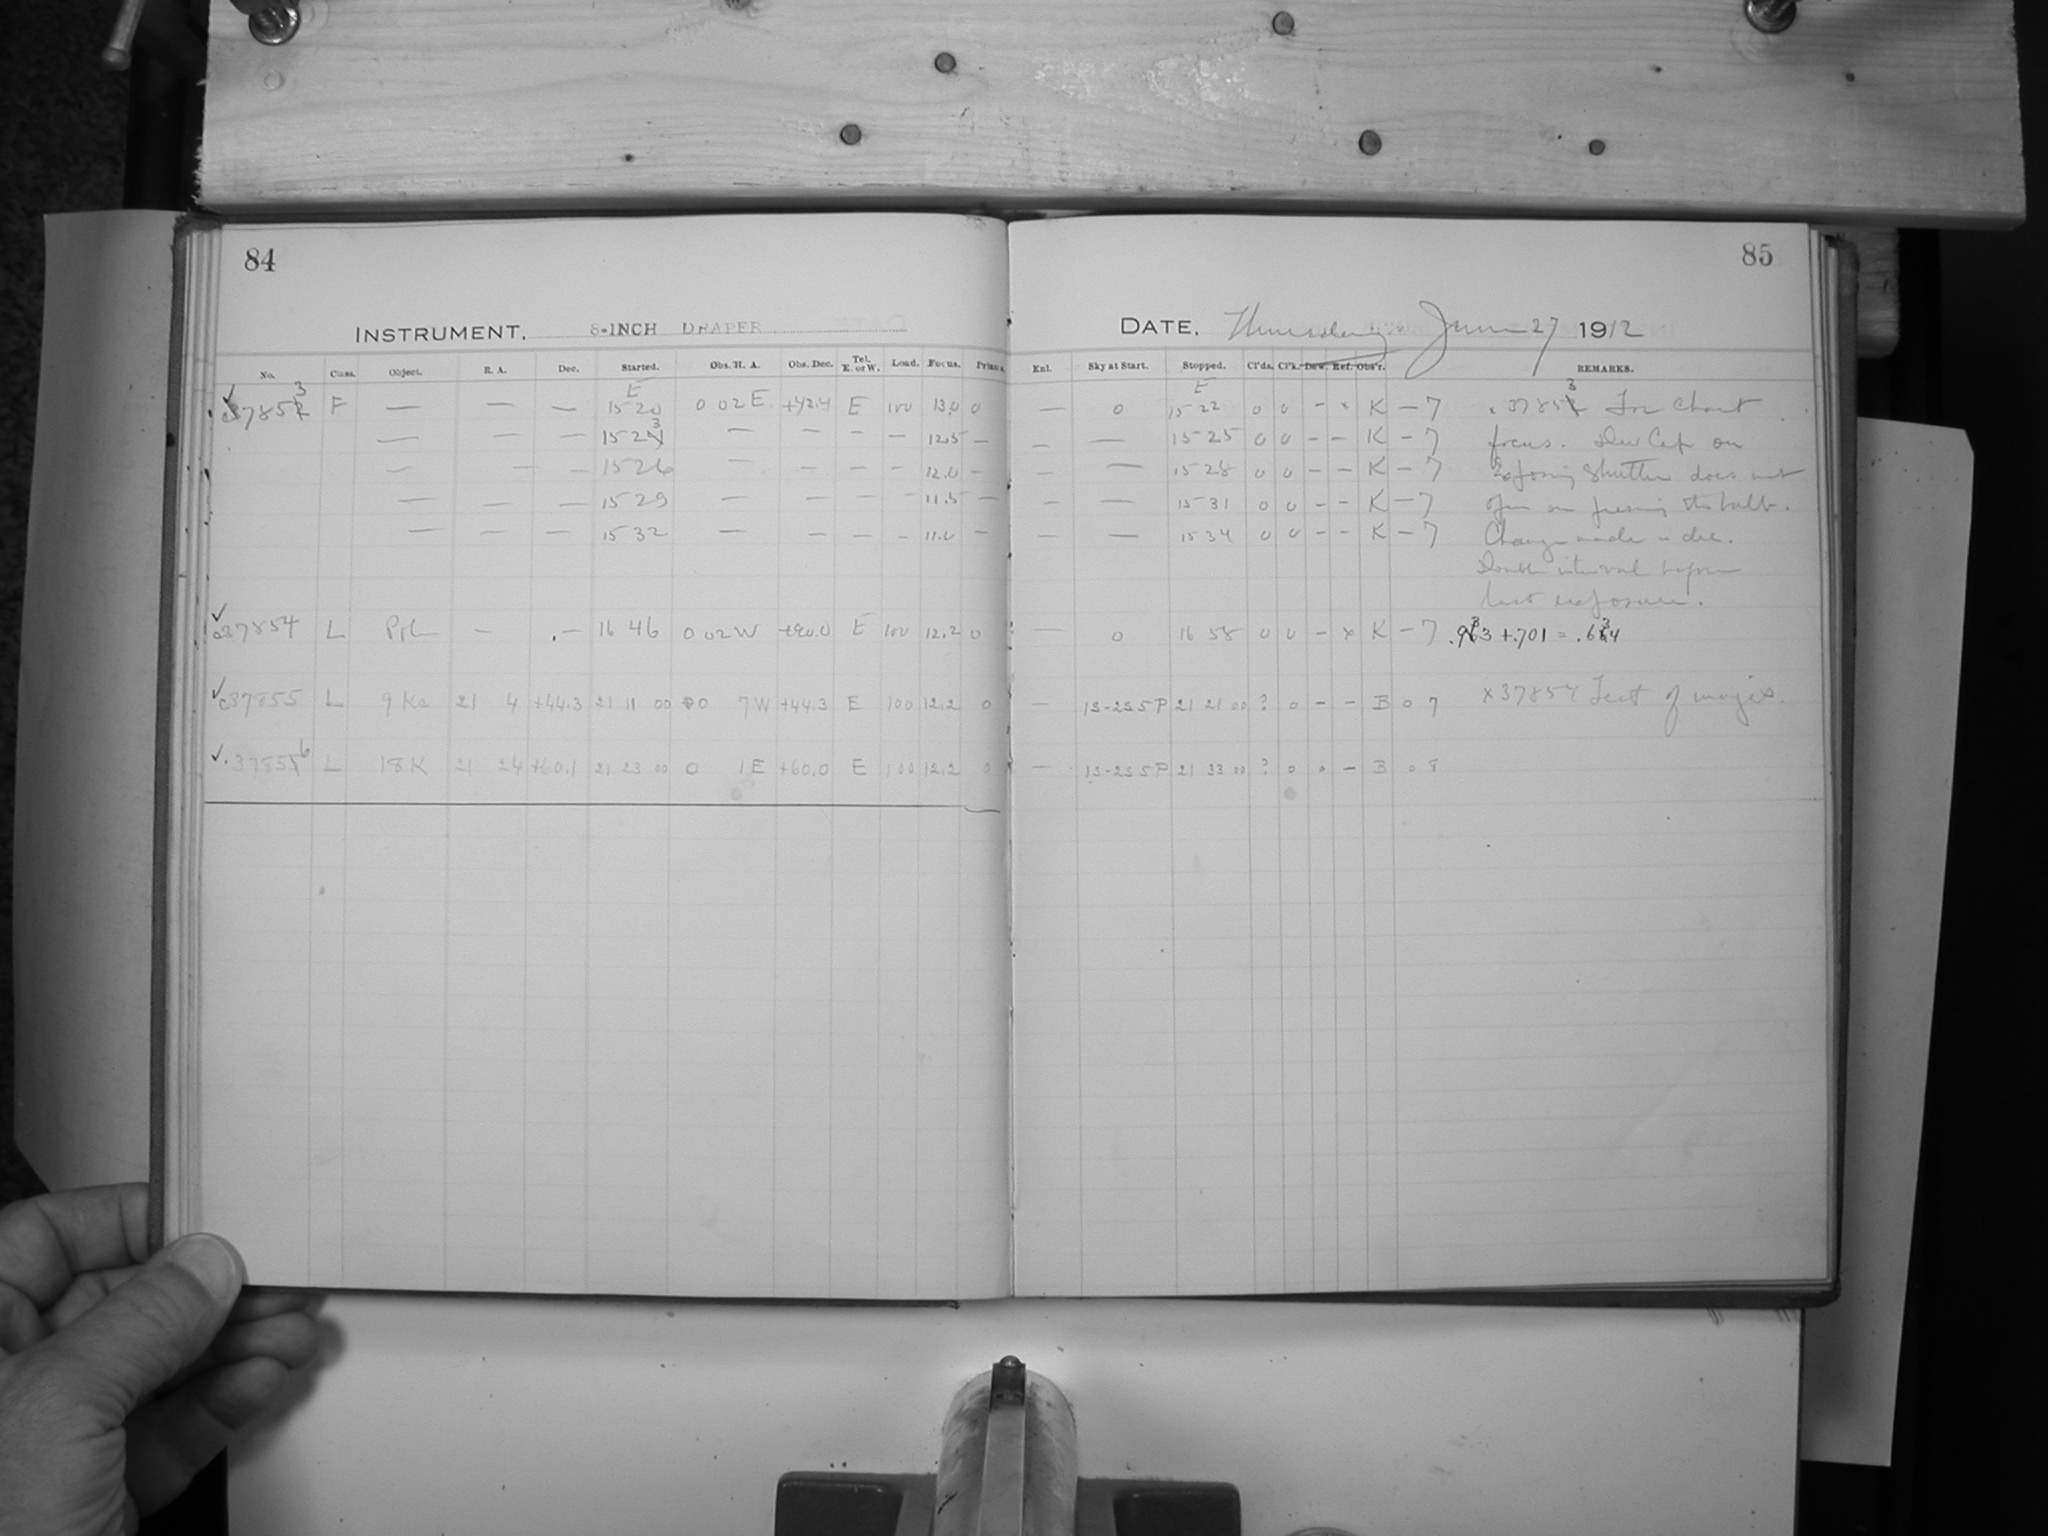 84
85
INSTRUMENT. 8-INCH DRAPER
DATE. Thursday June 27 1912
No. Class. Object. R. A. Dec. Started. Obs. H. A. Obs. Dec. Tel. E. or W. Load. Focus. Prism. Enl. Sky at Start. Stopped. Cl'ds. Cl'k. Dew. Ref. Obs'r. REMARKS.
E E
37853 F — — — 15 20 0 02 E +42.4 E 100 13.0 0 — 0 15 22 0 0 - x K - 7 37853 For Chart
— — — 15 23 — — — — 12.5 — — — 15 25 0 0 - - K - 7 focus. Dew Cap on
— — — 15 26 — — — — 12.0 — — — 15 28 0 0 - - K - 7 Exposing shutter does not
— — — 15 29 — — — — 11.5 — — — 15 31 0 0 - - K - 7 open on pressing the bulb.
— — — 15 32 — — — — 11.0 — — — 15 34 0 0 - - K - 7 Change made in dec.
Double interval before
last exposure.
c37854 L Pol — .— 16 46 0 02 W +90.0 E 100 12.2 0 — 0 16 58 0 0 - x K - 7 .933 + .701 = .634
c37855 L 9 Ka 21 4 +44.3 21 11 00 0 7 W +44.3 E 100 12.2 0 — 1S-2S5P 21 21 00 ? 0 - - B 0 7 x 37854 Test of magics.
37856 L 18 K 21 24 +60.1 21 23 00 0 1 E +60.0 E 100 12.2 0 — 1S-2S5P 21 33 00 ? 0 0 - B 0 8